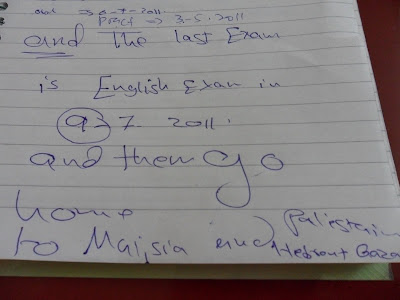 oral => 6-7-2011.
Pract => 3-5.2011
and The last Exam
is English Exam in
9-7 2011.
and then go
home
to Malisia and) Palestain
Hebront Gaza